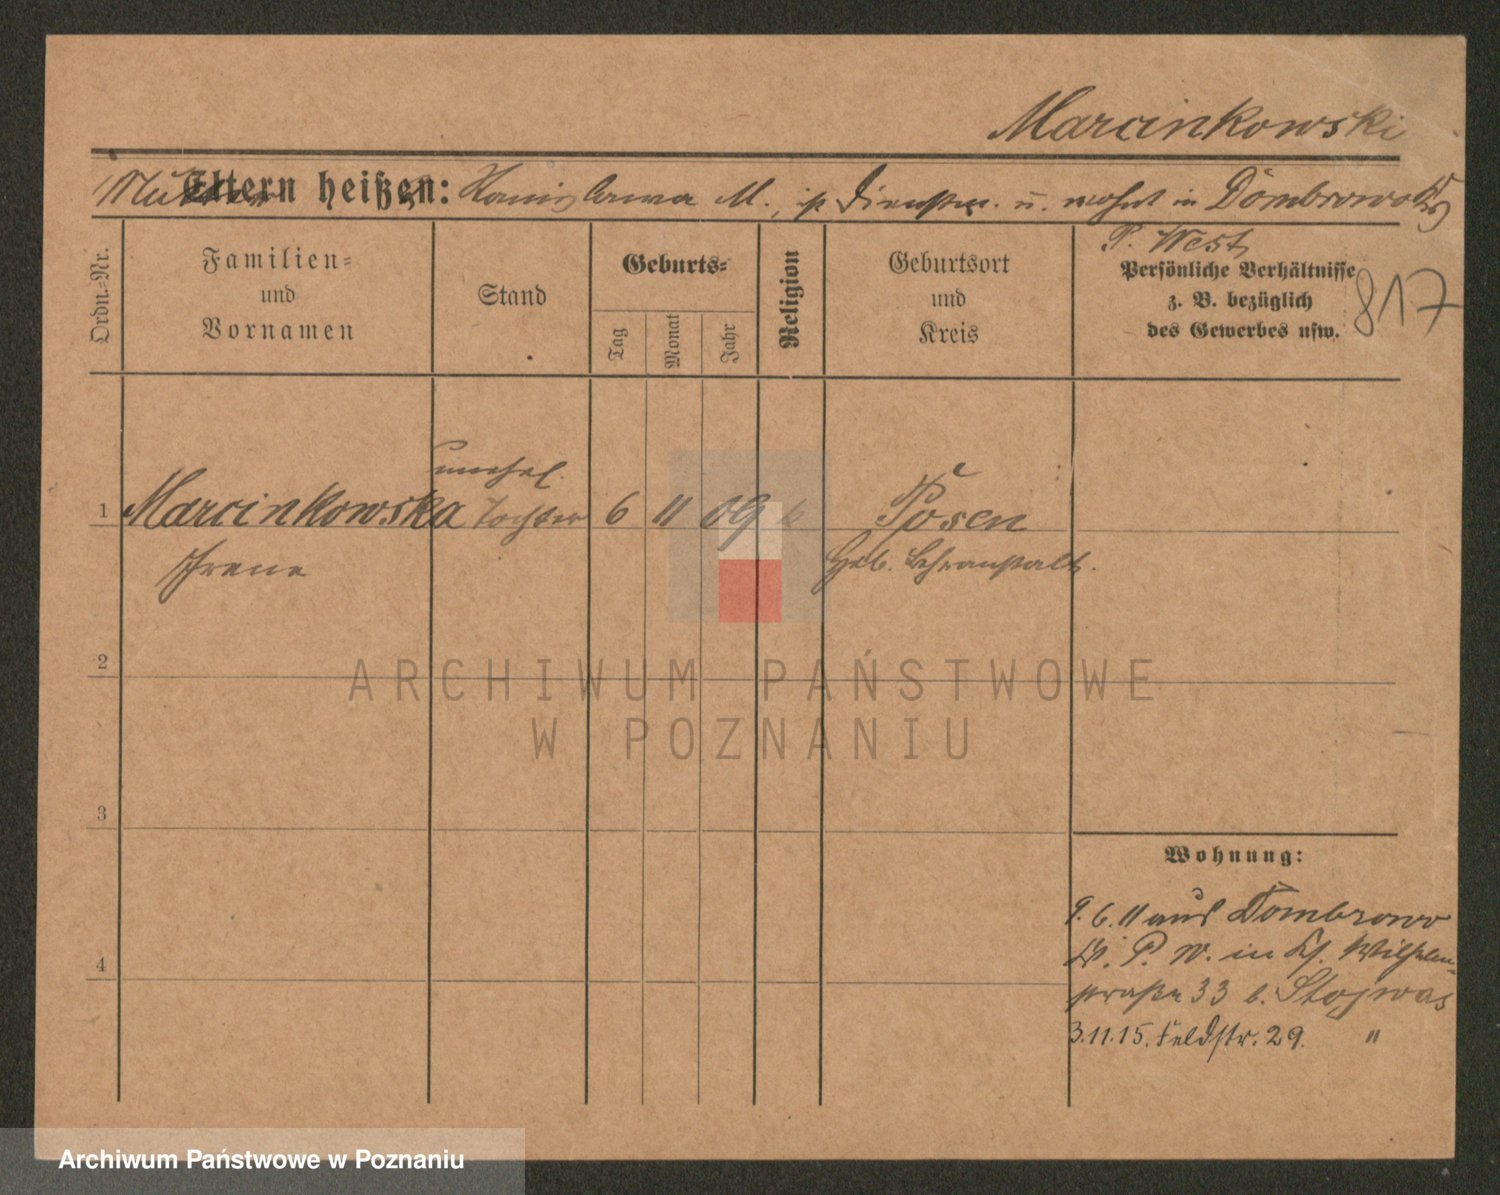 Marcinkowski
Mutter Eltern heißen: Stanislawa M., ist Dienstm. u. wohnt in Dombrowo Kr.
P. West
Ordn.-Nr.
Familien-
und
Vornamen
Stand
Geburts-
Tag
Monat
Jahr
Religion
Geburtsort
und
Kreis
Persönliche Verhältnisse
z. B. bezüglich
des Gewerbes usw.
817
unehel.
1 Marcinkowska Tochter 6 11 09 k Posen
Irene Heb. Lehranstalt.
2
ARCHIWUM PAŃSTWOWE
W POZNANIU
3
Wohnung:
9.6.11 aus Dombrowo
Kr. P. W. in Wilhelm-
straße 33 b. Stojwas
4
3.11.15. Feldstr. 29. "
Archiwum Państwowe w Poznaniu